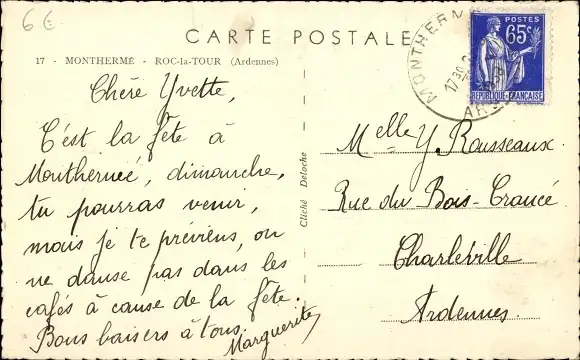 6€
CARTE POSTALE
17 - MONTHERMÉ - ROC-la-TOUR (Ardennes)
POSTES
65c
REPUBLIQUE-FRANÇAISE
MONTHERM
17 30
AR
Chère Yvette,
C'est la fête à
Monthermé, dimanche,
tu pourras venir,
mais je te préviens, on
ne danse pas dans les
cafés à cause de la fête.
Bons baisers à tous.
Marguerite
Cliché Deloche
Melle Y. Rousseaux.
Rue du Bois-Crancé
Charleville
Ardennes.